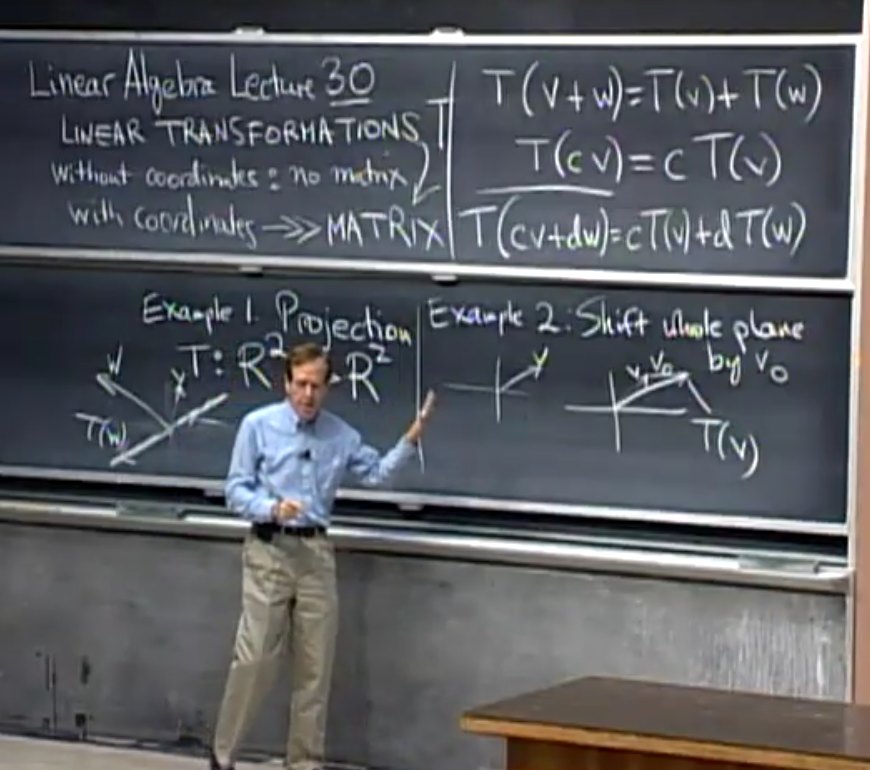 Linear Algebra Lecture 30
LINEAR TRANSFORMATIONS T
without coordinates : no matrix
with coordinates →>> MATRIX
T(v+w)=T(v)+T(w)
T(cv)=cT(v)
T(cv+dw)=cT(v)+dT(w)
Example 1. Projection
T: R² R²
w
v
T(w)
Example 2: Shift whole plane
by v₀
v
v, v₀
T(v)